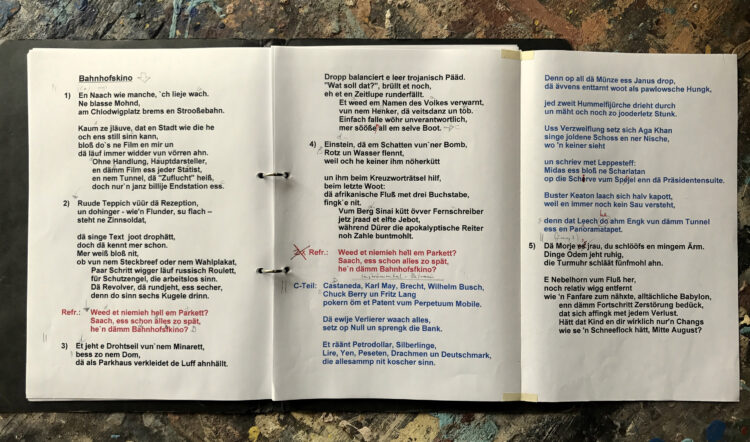 Bahnhofskino
1) En Naach wie manche, ´ch lieje wach.
Ne blasse Mohnd,
am Chlodwigplatz brems en Strooßebahn.
Kaum ze jläuve, dat en Stadt wie die he
och ens still sinn kann,
bloß do´s ne Film en mir un
dä läuf immer widder vun vürren ahn.
Ohne Handlung, Hauptdarsteller,
en dämm Film ess jeder Statist,
en nem Tunnel, dä "Zuflucht" heiß,
doch nur´n janz billije Endstation ess.
2) Ruude Teppich vüür dä Rezeption,
un dohinger - wie'n Flunder, su flach –
steht ne Zinnsoldat,
dä singe Text joot drophätt,
doch dä kennt mer schon.
Mer weiß bloß nit,
ob vun nem Steckbreef oder nem Wahlplakat,
Paar Schritt wigger läuf russisch Roulett,
für Schutzengel, die arbeitslos sinn.
Dä Revolver, dä rundjeht, ess secher,
denn do sinn sechs Kugele drinn.
Refr.: Weed et niemieh hell em Parkett?
Saach, ess schon alles zo spät,
he´n dämm Bahnhofskino?
3) Et jeht e Drohtseil vun´nem Minarett,
bess zo nem Dom,
dä als Parkhaus verkleidet de Luff ahnhällt.
Dropp balanciert e leer trojanisch Pääd.
"Wat soll dat?", brüllt et noch,
eh et en Zeitlupe runderfällt.
Et weed em Namen des Volkes verwarnt,
vun nem Henker, dä veitsdanz un tob.
Einfach falle wöhr unverantwortlich,
mer sööße all em selve Boot.
4) Einstein, dä em Schatten vun´ner Bomb,
Rotz un Wasser fiennt,
weil och he keiner ihm nöherkütt
un ihm beim Kreuzworträtsel hilf,
beim letzte Woot:
dä afrikanische Fluß met drei Buchstabe,
fingk´e nit.
Vum Berg Sinai kütt övver Fernschreiber
jetz jraad et elfte Jebot,
während Dürer die apokalyptische Reiter
noh Zahle buntmohlt.
2x Refr.: Weed et niemieh hell em Parkett?
Saach, ess schon alles zo spät,
he´n dämm Bahnhofskino?
C-Teil: Castaneda, Karl May, Brecht, Wilhelm Busch,
Chuck Berry un Fritz Lang
pokern öm et Patent vum Perpetuum Mobile.
Dä ewije Verlierer waach alles,
setz op Null un sprengk die Bank.
Et räänt Petrodollar, Silberlinge,
Lire, Yen, Peseten, Drachmen un Deutschmark,
die allesammp nit koscher sinn.
Denn op all dä Münze ess Janus drop,
dä ävvens enttarnt woot als pawlowsche Hungk,
jed zweit Hummelfijürche drieht durch
un mäht och noch zo jooderletz Stunk.
Uss Verzweiflung setz sich Aga Khan
singe joldene Schoss en ner Nische,
wo 'n keiner sieht
un schriev met Leppesteff:
Midas ess bloß ne Scharlatan
op die Schirve vum Spejel enn dä Präsidentensuite.
Buster Keaton laach sich halv kapott,
weil en immer noch kein Sau versteht,
denn dat Leech do ahm Engk vun dämm Tunnel
ess en Panoramatapet.
5) Dä Morje es jrau, du schlööfs en mingem Ärm.
Dinge Odem jeht ruhig,
die Turmuhr schlääät fünfmohl ahn.
E Nebelhorn vum Fluß her,
noch relativ wigg entfernt
wie 'n Fanfare zum nähxte, alltächliche Babylon,
enn dämm Fortschritt Zerstörung bedück,
dat sich affingk met jedem Verlust.
Hätt dat Kind en dir wirklich nur'n Changs
wie se 'n Schneeflock hätt, Mitte August?